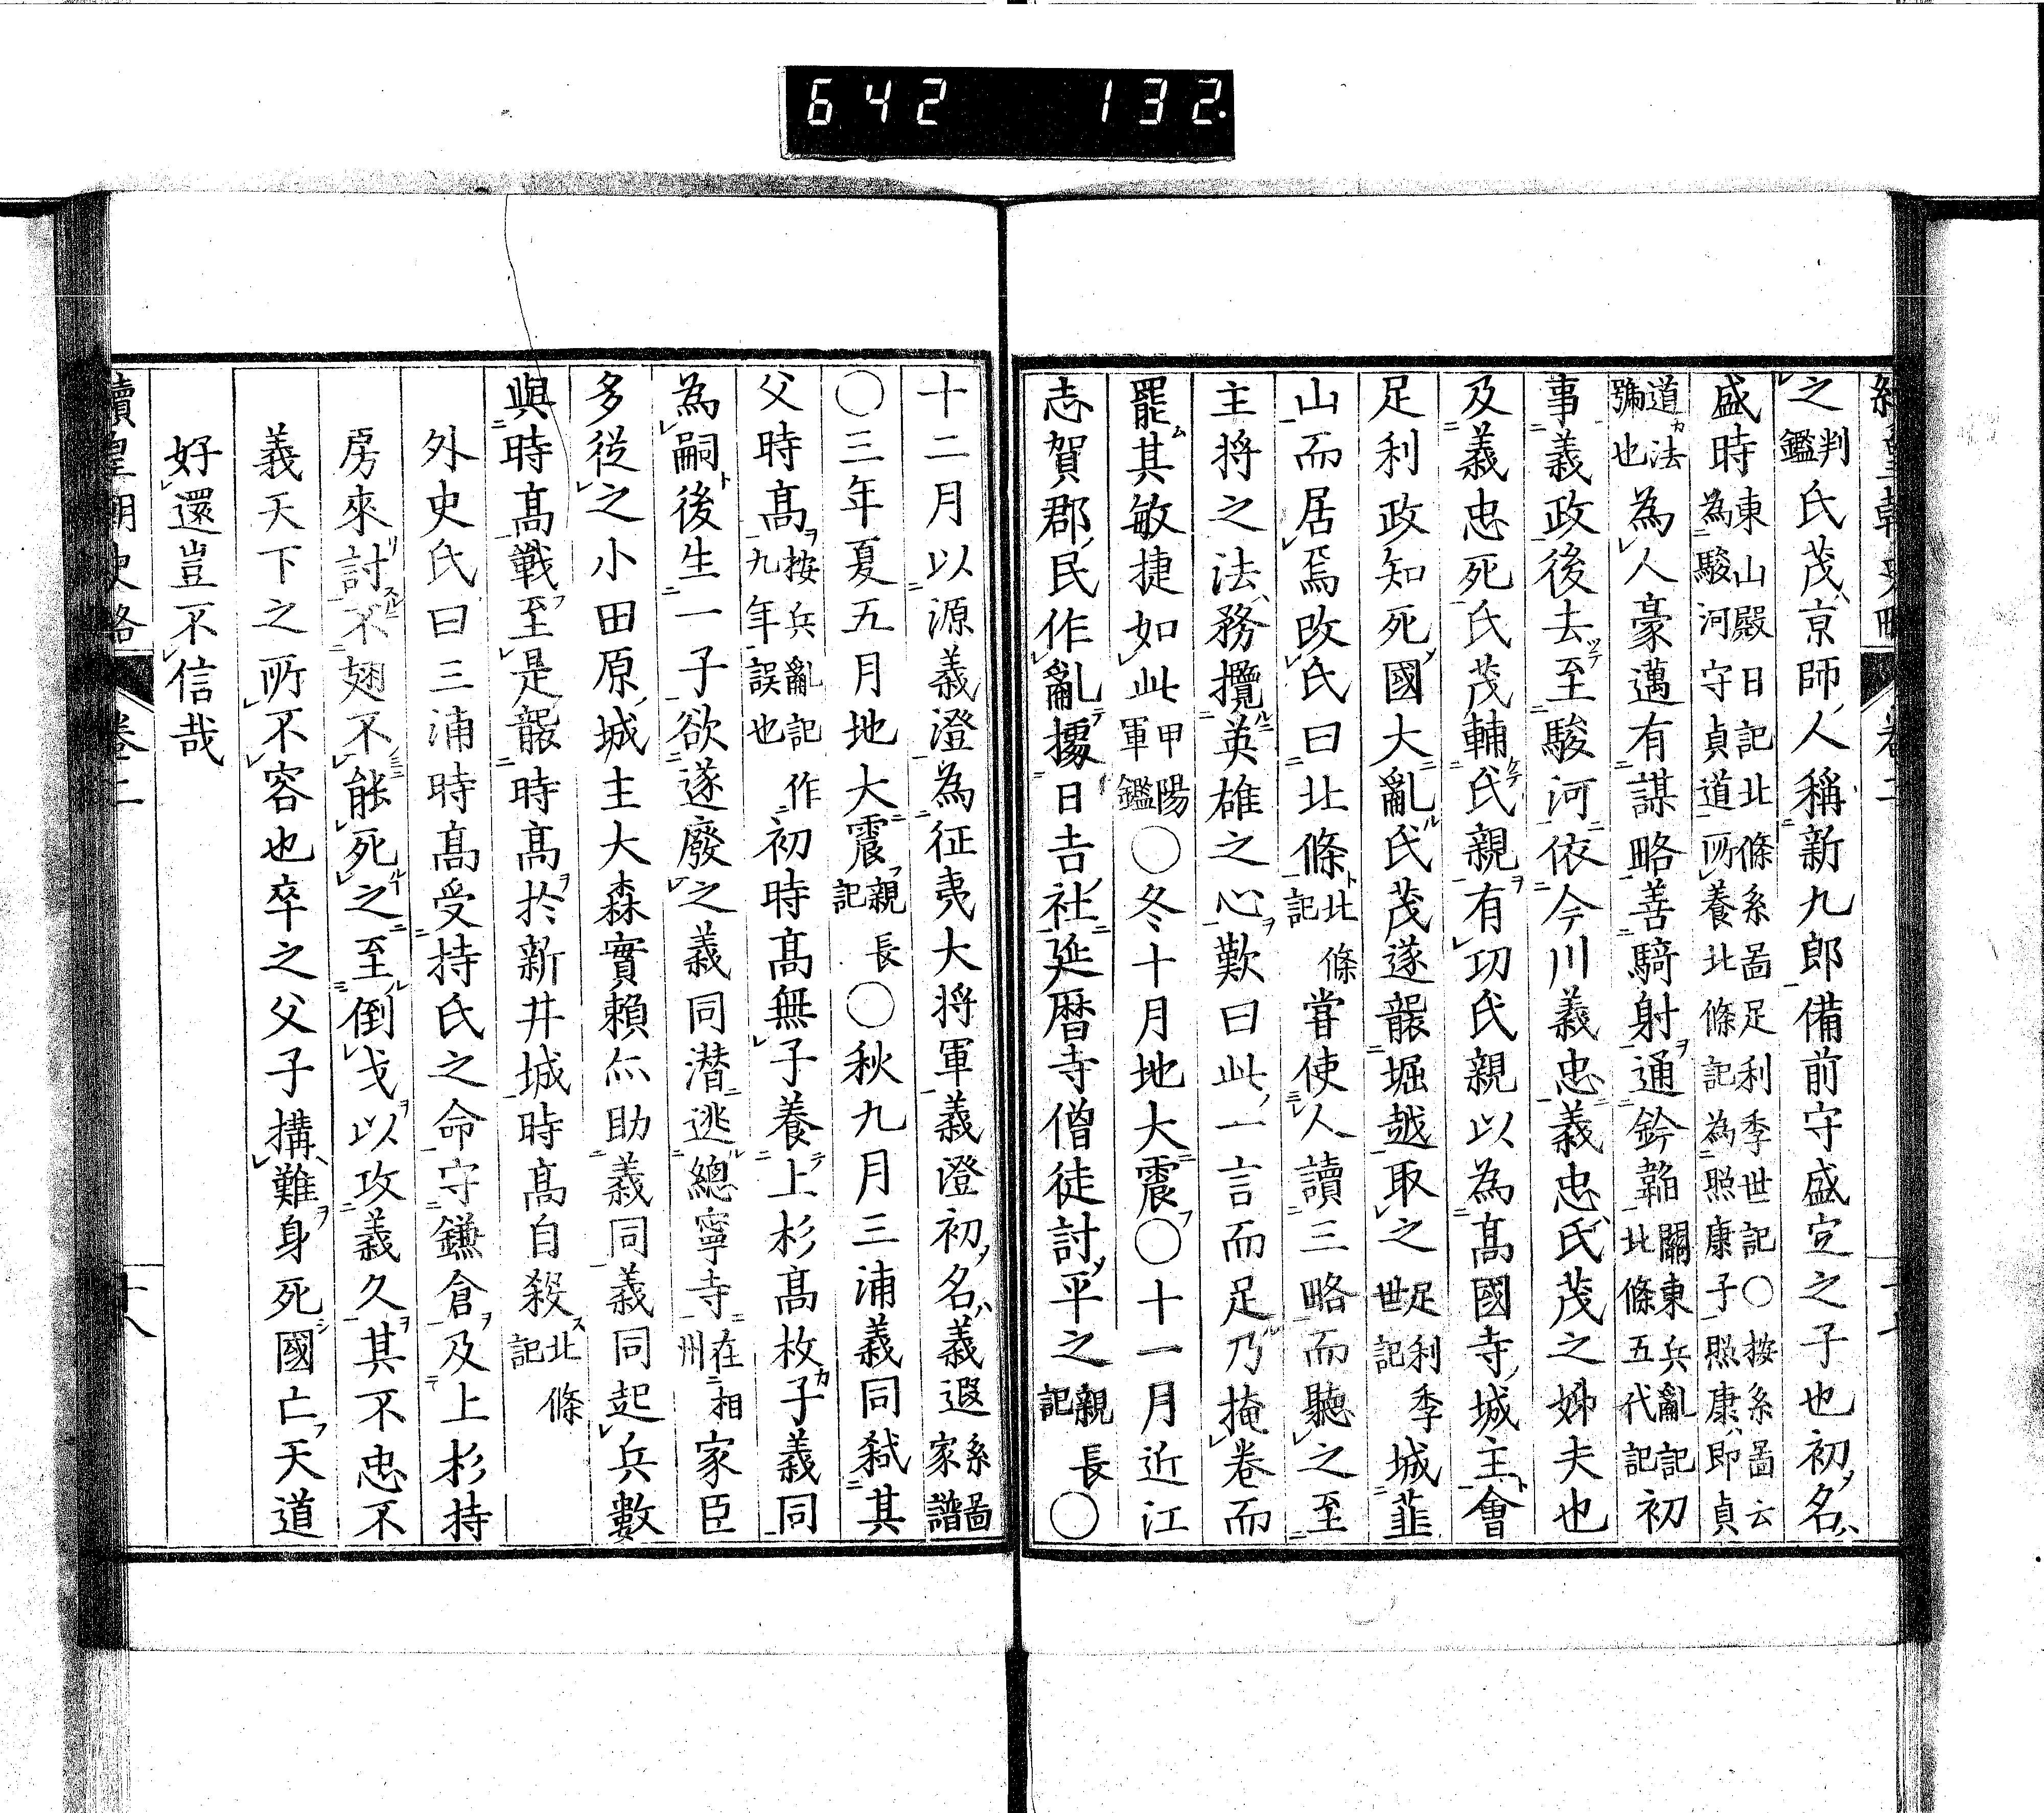 642 132
之判鑑氏茂京師人稱新九郎備前守盛定之子也初名
盛時東山殿日記北條系啚足利季世記〇按系啚云為駿河守貞道所養北條記為照康子照康即貞
道法號也為人豪邁有謀略善騎射通鈐韜關東兵亂記北條五代記初
事義政後去至駿河依今川義忠義忠氏茂之姊夫也
及義忠死氏茂輔氏親有功氏親以為高國寺城主會
足利政知死國大亂氏茂遂襲堀越取之足利季世記城韮
山而居焉改氏曰北條北條記嘗使人讀三略而聽之至
主將之法務攬英雄之心歎曰此一言而足乃掩卷而
罷其敏捷如此甲陽軍鑑〇冬十月地大震〇十一月近江
志賀郡民作亂據日吉社延曆寺僧徒討平之親長記〇
十二月以源義澄為征夷大將軍義澄初名義遐系啚家譜
〇三年夏五月地大震親長記〇秋九月三浦義同弒其
父時高按兵亂記作九年誤也初時高無子養上杉高枚子義同
為嗣後生一子欲遂廢之義同潛逃總寧寺在相州家臣
多從之小田原城主大森實賴亦助義同義同起兵數
與時高戰至是襲時高於新井城時高自殺北條記
外史氏曰三浦時高受持氏之命守鎌倉及上杉持
房來討不翅不能死之至倒戈以攻義久其不忠不
義天下之所不容也卒之父子搆難身死國亡天道
好還豈不信哉
續皇朝史略 卷二 十八